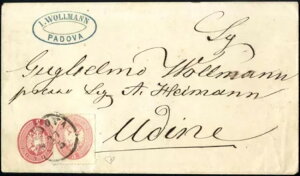 I. WOLLMANN
PADOVA
Sig
Guglielmo Wollmann
presso Sig A. Heimann
Udine